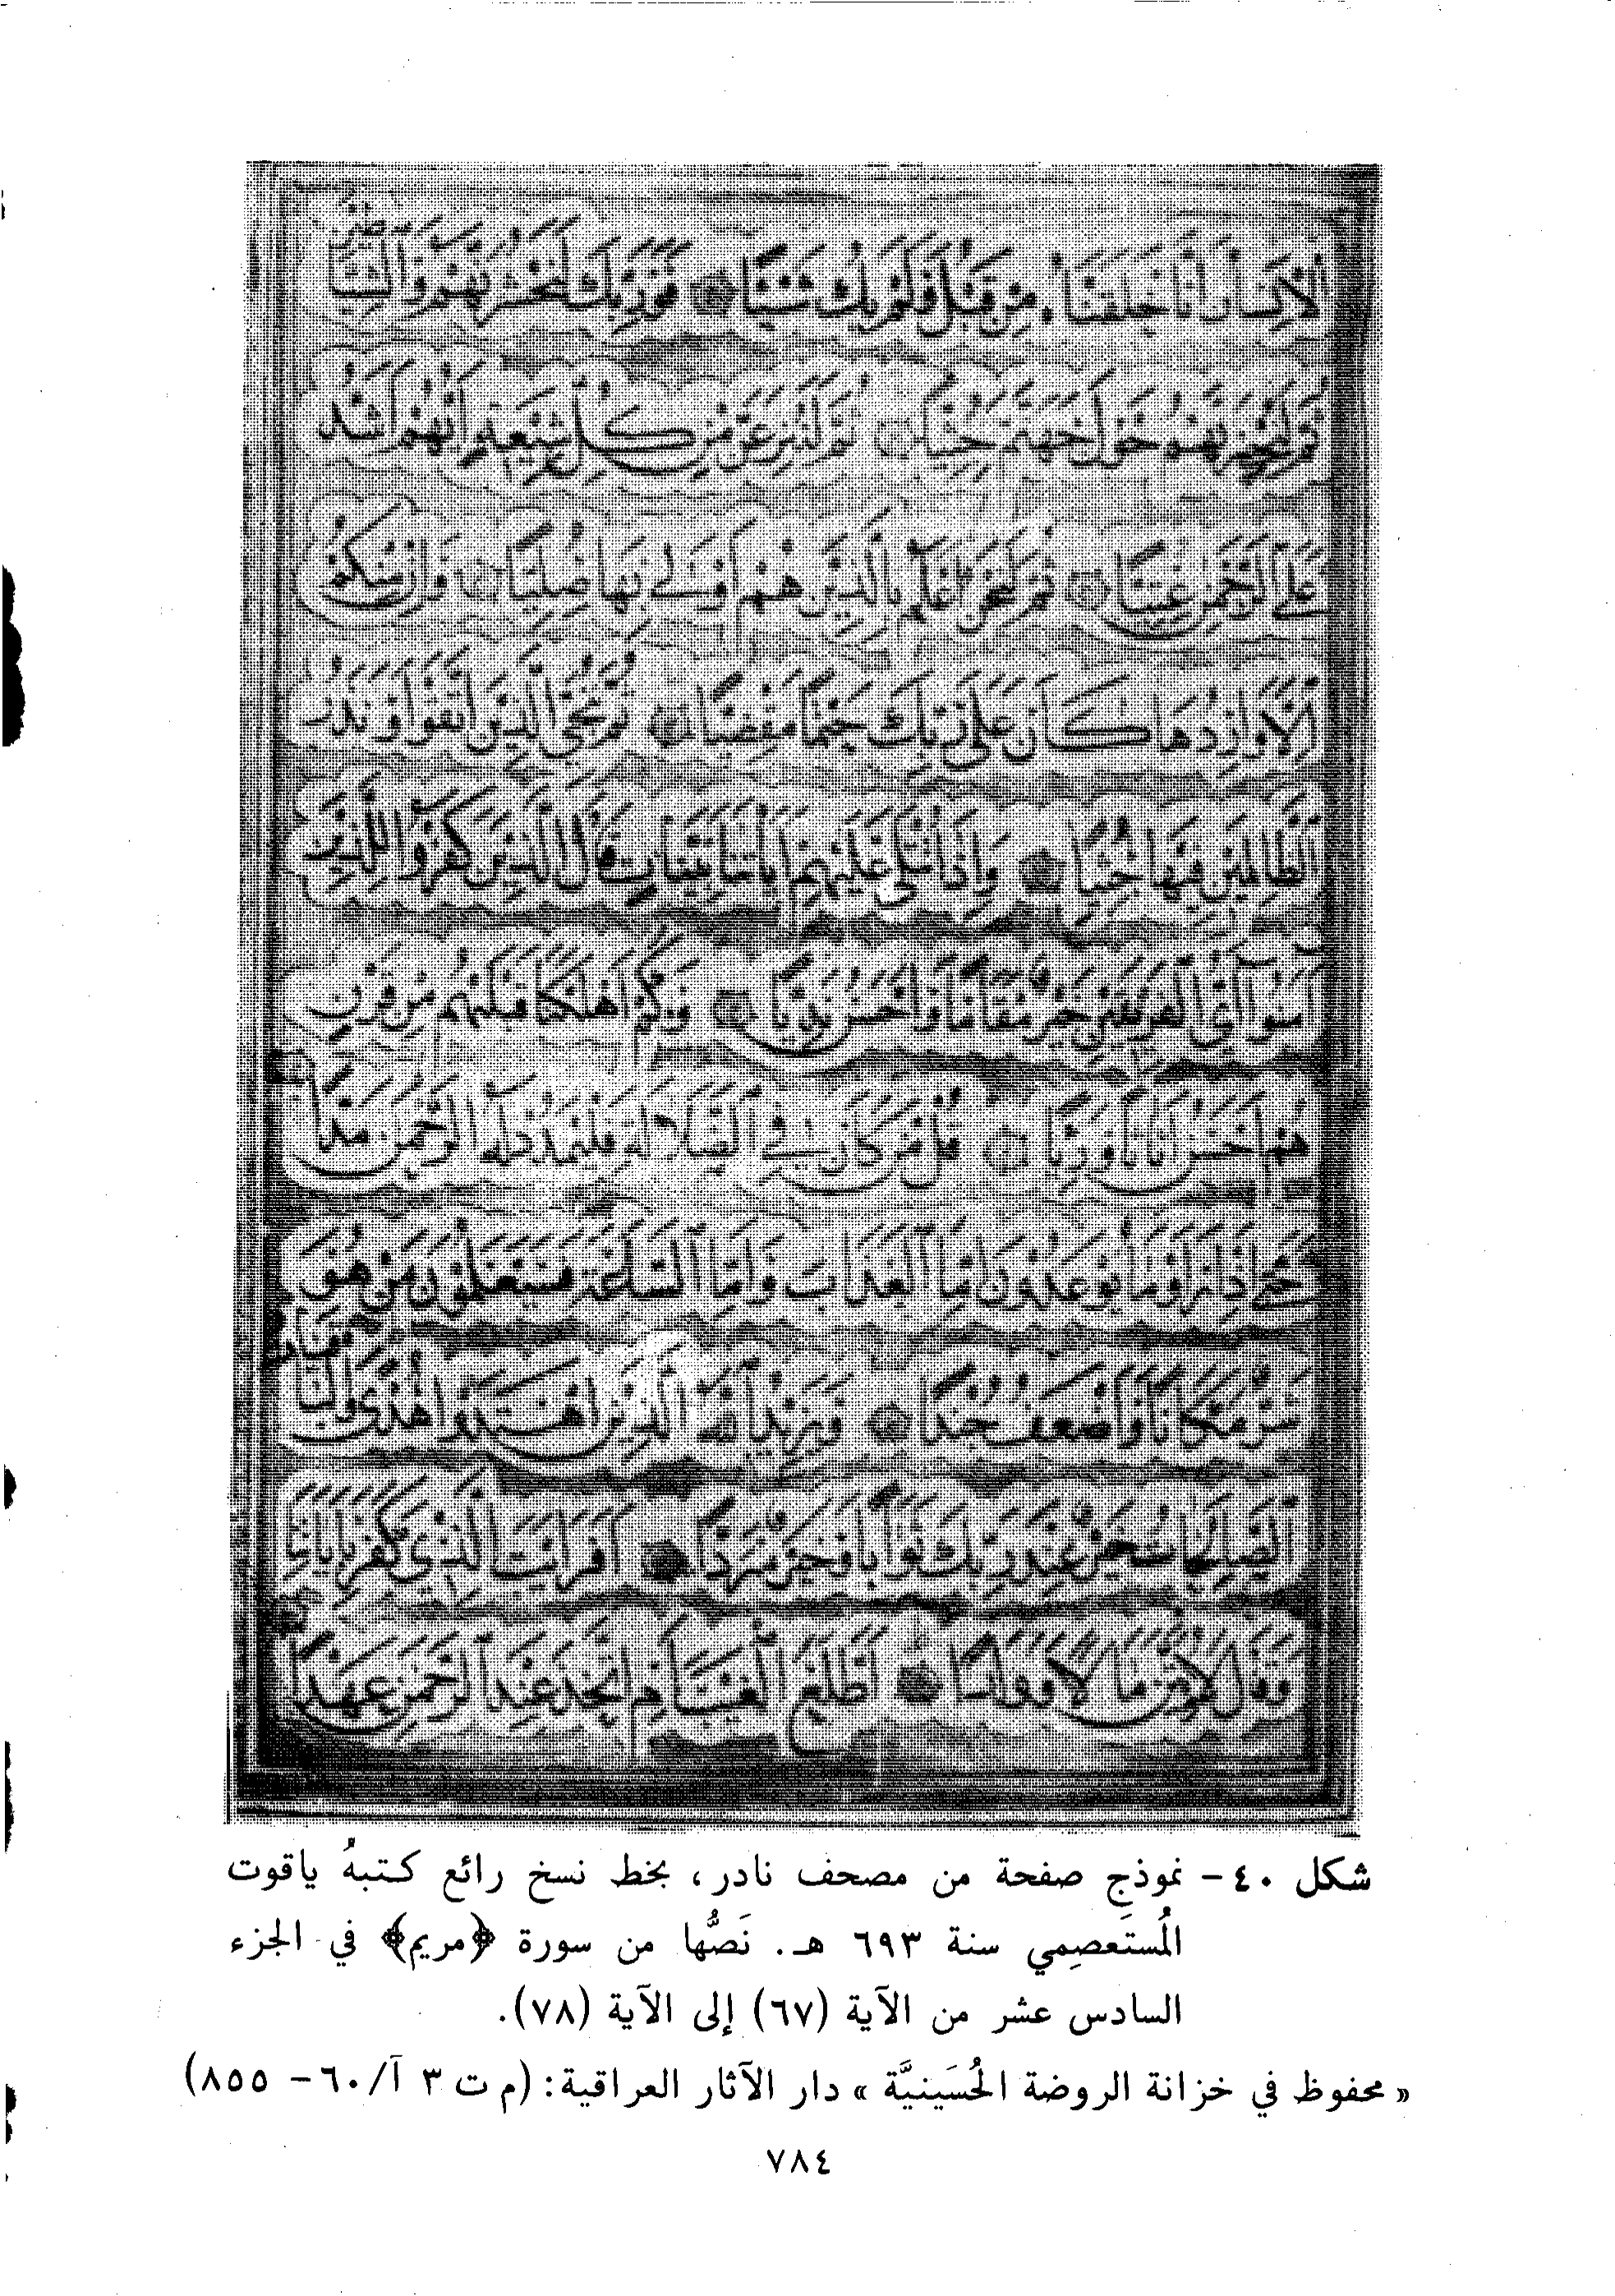 الإنسان أنا خلقناه من قبل ولم يك شيئا فوربك لنحشرنهم والشياطين
ثم لنحضرنهم حول جهنم جثيا ثم لننزعن من كل شيعة أيهم أشد
على الرحمن عتيا ثم لنحن أعلم بالذين هم أولى بها صليا وإن منكم
إلا واردها كان على ربك حتما مقضيا ثم ننجي الذين اتقوا ونذر
الظالمين فيها جثيا وإذا تتلى عليهم آياتنا بينات قال الذين كفروا للذين
آمنوا أي الفريقين خير مقاما وأحسن نديا وكم أهلكنا قبلهم من قرن
هم أحسن أثاثا ورئيا قل من كان في الضلالة فليمدد له الرحمن مدا
حتى إذا رأوا ما يوعدون إما العذاب وإما الساعة فسيعلمون من هو
شر مكانا وأضعف جندا ويزيد الله الذين اهتدوا هدى والباقيات
الصالحات خير عند ربك ثوابا وخير مردا أفرأيت الذي كفر بآياتنا
وقال لأوتين مالا وولدا أطلع الغيب أم اتخذ عند الرحمن عهدا
شكل ٤٠- نموذج صفحة من مصحف نادر، بخط نسخ رائع كـتبهُ ياقوت
المُستَعصِمي سنة ٦٩٣ هـ. نَصُّها من سورة ﴿مريم﴾ في الجزء
السادس عشر من الآية (٦٧) إلى الآية (٧٨).
«محفوظ في خزانة الروضة الحُسَينيَّة» دار الآثار العراقية: (م ت ٣ آ/٦٠- ٨٥٥)
٧٨٤